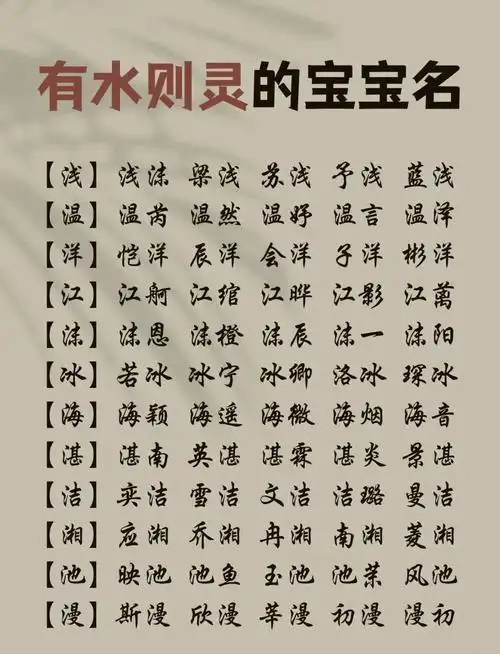 有水则灵的宝宝名
【浅】浅沫 梁浅 苏浅 予浅 蓝浅
【温】温芮 温然 温妤 温言 温泽
【洋】恺洋 辰洋 会洋 子洋 彬洋
【江】江舸 江绾 江晔 江影 江蓠
【沫】沫恩 沫橙 沫辰 沫一 沫阳
【冰】若冰 冰宁 冰卿 洛冰 琛冰
【海】海颖 海遥 海微 海烟 海音
【湛】湛南 英湛 湛霖 湛炎 景湛
【洁】奕洁 雪洁 文洁 洁璐 曼洁
【湘】应湘 乔湘 冉湘 南湘 菱湘
【池】映池 池鱼 玉池 池茉 风池
【漫】斯漫 欣漫 莘漫 初漫 漫初